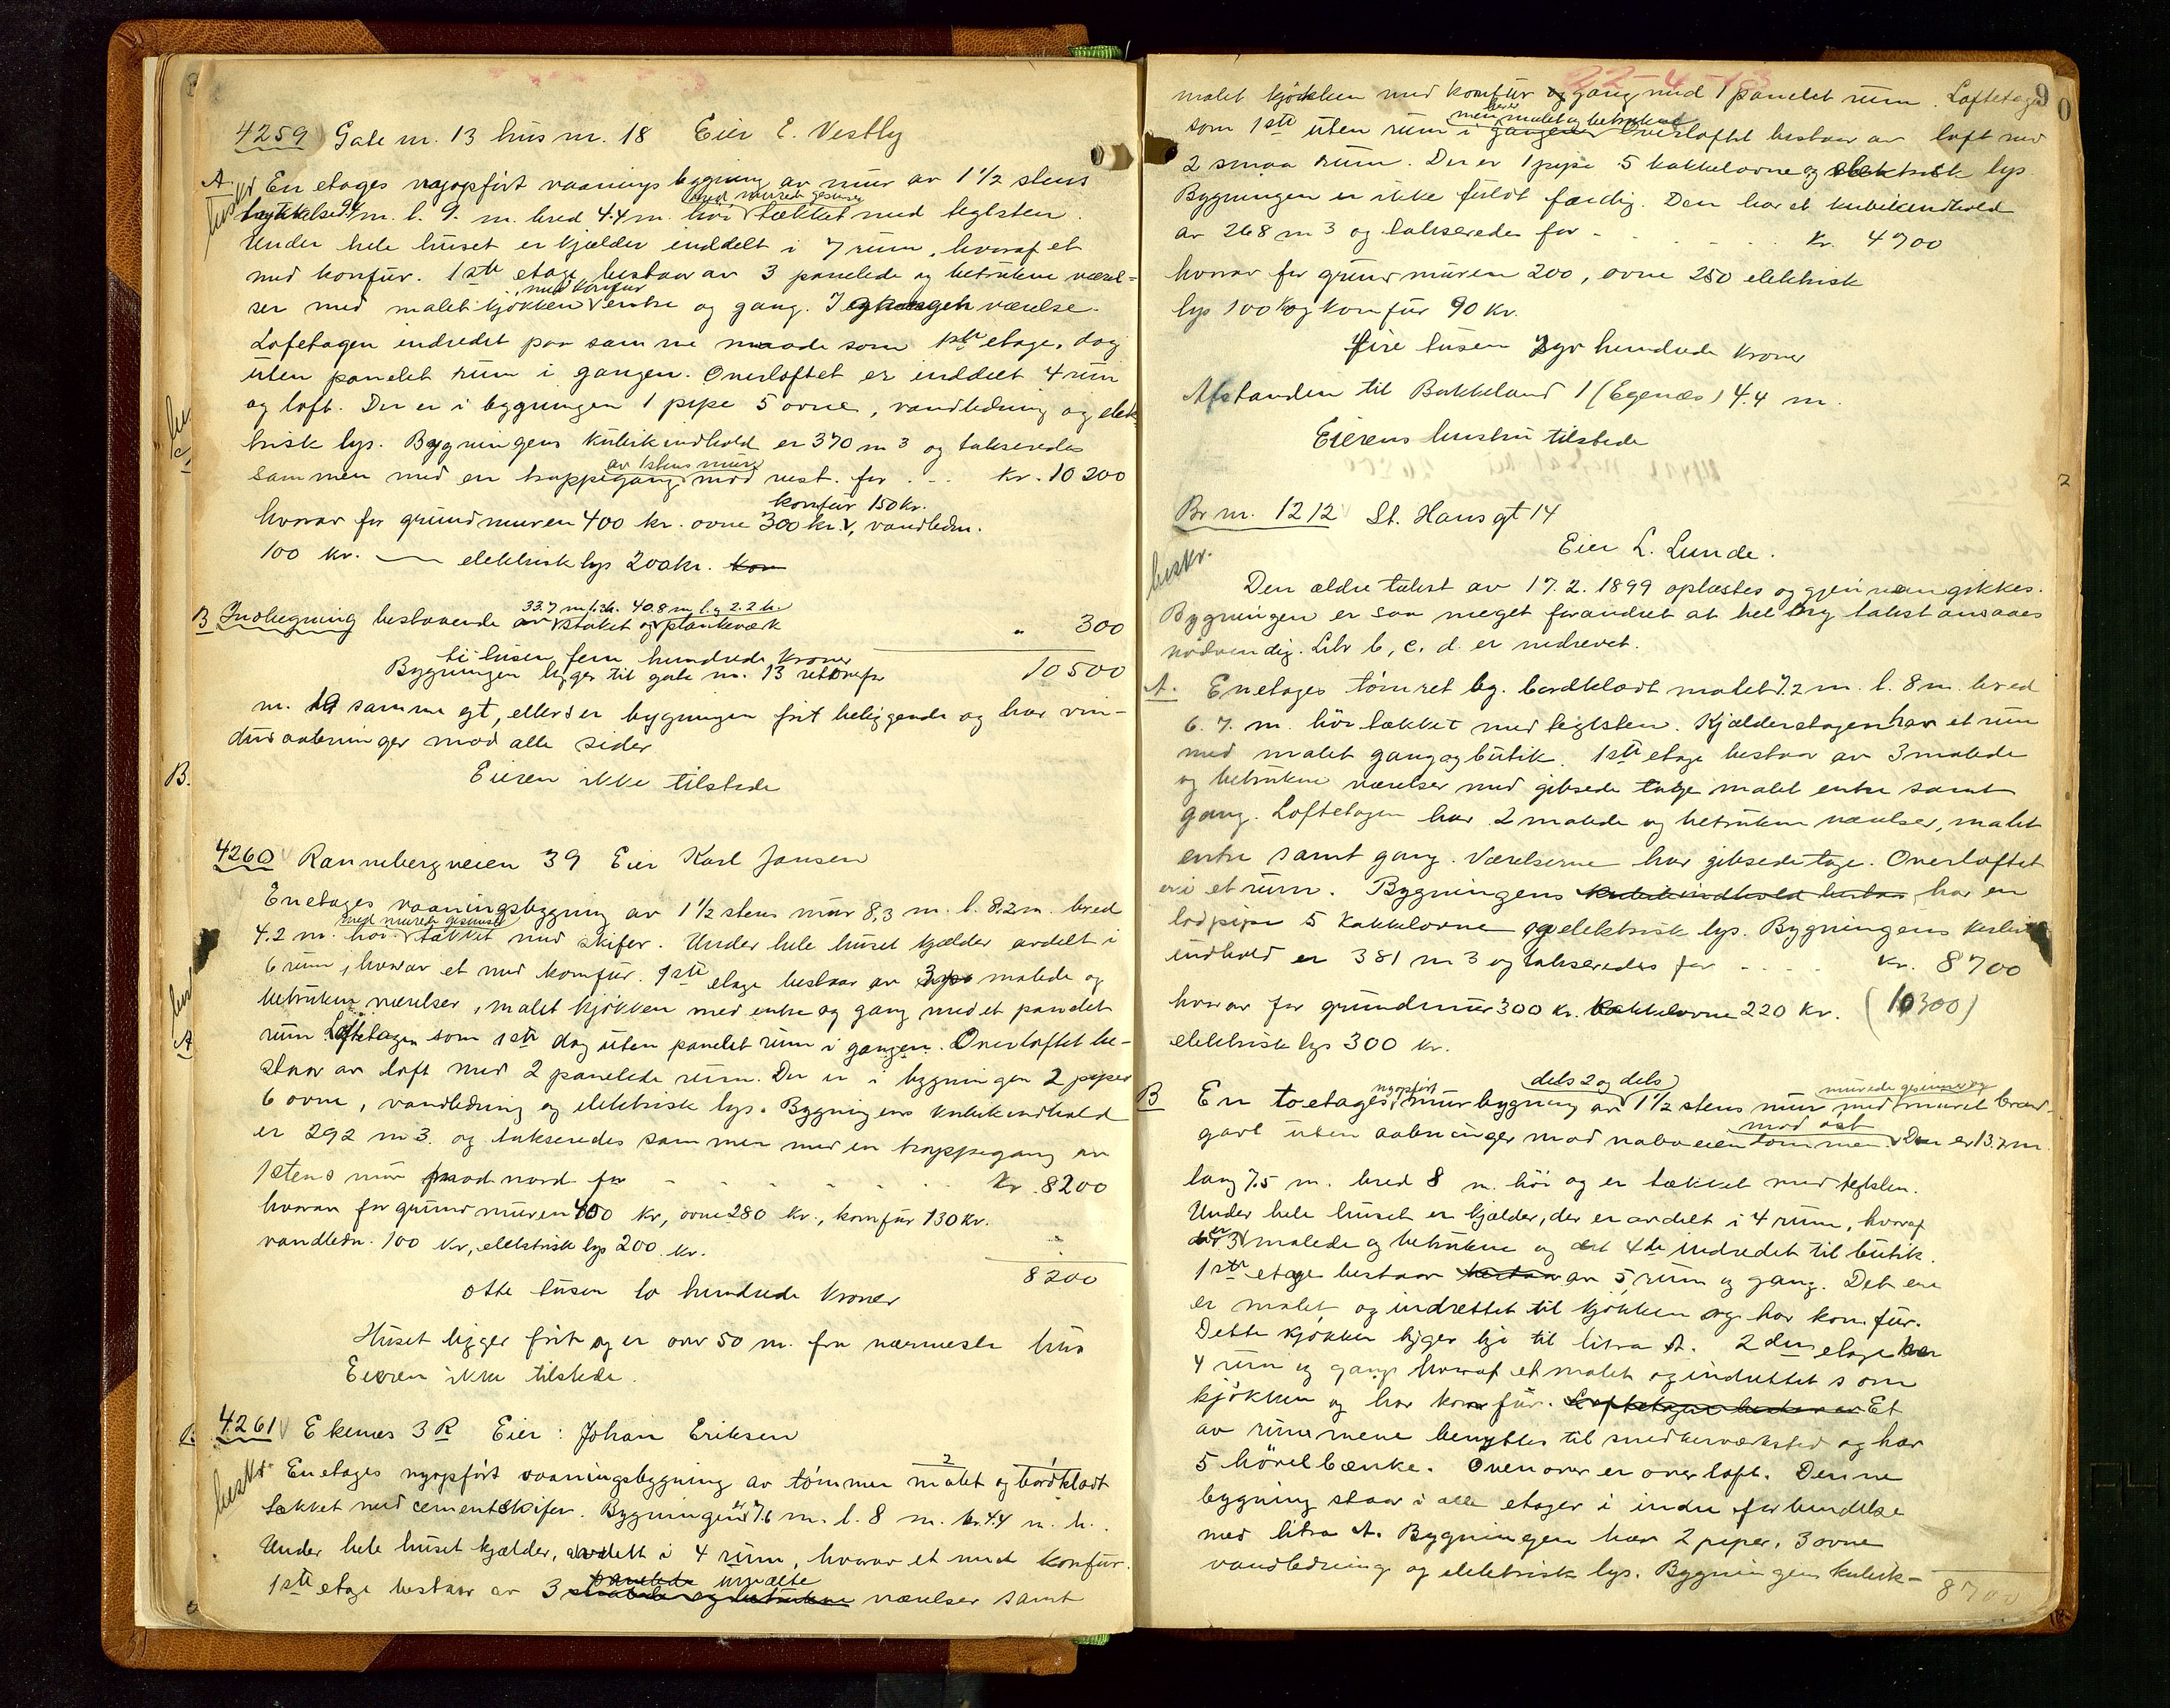 4259 Gate nr. 13 hus nr. 18 Eier E. Vestly
A. En etages nyopført vaaningsbygning av mur av 1 1/2 stens
beskr
med murede gesimser
tykkelse 9.4 m. l. 9. m. bred 4.4 m. høi tækket med teglsten.
Under hele huset er kjælder inddelt i 7 rum, hvoraf et
med komfur. 1ste etage bestaar av 3 panelede og betrukne værel-
med komfur
ser med malet kjøkken entre og gang. I gangen værelse.
Loftetagen indredet paa samme maade som 1ste etage, dog
uten panelet rum i gangen. Overloftet er inddelt 4 rum
og loft. Der er i bygningen 1 pipe 5 ovne, vandledning og elek-
trisk lys. Bygningens kubikindhold er 370 m3 og takseredes
av 1 stens mur
sammen med en trappegang mod vest. for . . . kr. 10 200
komfur 150 kr.
hvorav for grundmuren 400 kr. ovne 300 kr., vandledn.
100 kr. elektrisk lys 200 kr. kom
33.7 m. l. 40.8 m. l. og 2.2 h.
B Indhegning bestaaende av staket og plankeværk " 300
ti tusen fem hundrede kroner
10 500
Bygningen ligger til gate nr. 13 ret overfor
nr. 19 samme gt, ellers er bygningen frit beliggende og har vin-
dusaabninger mod alle sider
Eieren ikke tilstede
B.
4260 Rannebergveien 39 Eier Karl Jansen
Enetages vaaningsbygning av 1 1/2 stens mur 8,3 m. l. 8.2 m. bred
med murede gesimser
4.2 m. høi tækket med skifer. Under hele huset kjælder avdelt i
6 rum, hvorav et med komfur. 1ste etage bestaar av 3 malede og
betrukne værelser, malet kjøkken med entre og gang med et panelet
rum. Loftetagen som 1ste dog uten panelet rum i gangen. Overloftet be-
staar av loft med 2 panelede rum. Der er i bygningen 2 piper
6 ovne, vandledning og elektrisk lys. Bygningens kubikindhold
er 292 m3. og takseredes sammen med en trappegang av
1 stens mur mod nord for - - - - - kr. 8200
hvorav for grundmuren 400 kr, ovne 280 kr., komfur 130 kr.
vandledn. 100 kr, elektrisk lys 200 kr.
8200
otte tusen to hundrede kroner
Huset ligger frit og er over 50 m. fra nærmeste hus
Eieren ikke tilstede.
4261 Ekenes 3 R Eier: Johan Eriksen
beskr.
Enetages nyopført vaaningsbygning av tømmer malet og bordklædt
tækket med cementskifer. Bygningen er 7.6 m. l. 8 m. br. 4.4 m. h.
Under hele huset kjælder, avdelt i 4 rum, hvorav et med komfur.
panelede umalte
1ste etage bestaar av 3 malede og betrukne værelser samt
22-4-13
90
malet kjøkken med komfur og gang med 1 panelet rum. Loftetage
men malet og betrukket
som 1ste uten rum i gangen Overloftet bestaar av loft med
2 smaa rum. Der er 1 pipe 5 kakkelovne og elektrisk lys.
Bygningen er ikke fuldt færdig. Den har et kubikindhold
av 268 m3 og takseredes for - - - - - kr. 4700
hvorav for grundmuren 200, ovne 250 elektrisk
lys 100 kr og komfur 90 kr.
fire tusen syv hundrede kroner
Afstanden til Bakkeland 1 (Egenæs) 4.4 m.
Eierens hustru tilstede
Br nr. 1212 St. Hansgt 14
Eier L. Lunde.
beskr.
Den ældre takst av 17.2.1899 oplæstes og gjennemgikkes.
Bygningen er saa meget forandret at hel ny takst ansaaes
nødvendig. Litr b, c, d. er nedrevet.
A. Enetages tømret bg. bordklædt malet 7.2 m. l. 8 m. bred
6.7. m. høi tækket med teglsten. Kjælderetagen har et rum
med malet gang og butik. 1ste etage bestaar av 3 malede
og betrukne værelser med gibsede tage malet entre samt
gang. Loftetagen har 2 malede og betrukne værelser, malet
entre samt gang. Værelserne har gibsede tage. Overloftet
er i et rum. Bygningens kubikindhold bestaar har en
lodpipe 5 kakkelovne og elektrisk lys. Bygningens kubik
indhold er 381 m3 og takseredes for - - - - kr. 8700
hvorav for grundmur 300 kr. kakkelovne 220 kr. (10300)
elektrisk lys 300 kr.
nyopført dels 2 og dels murede gesimser og
B En toetages murbygning av 1 1/2 stens mur med muret brand-
mod øst
gavl uten aabninger mod naboeiendommen. Den er 13.7 m.
lang 7.5 m. bred 8 m. høi og er tækket med teglsten.
Under hele huset er kjælder, der er avdelt i 4 rum, hvoraf
de 3 er malede og betrukne og det 4de indredet til butik.
1ste etage bestaar bestaar av 5 rum og gang. Det ene
er malet og indrettet til kjøkken og har komfur.
Dette kjøkken ligger lige til litra A. 2den etage har
4 rum og gang hvoraf et malet og indrettet som
kjøkken og har komfur. Loftetagen bestaar av Et
av rummene benyttes til snedkerværksted og har
5 høvelbænke. Ovenover er overloft. Denne
bygning staar i alle etager i indre forbindelse
med litra A. Bygningen har 2 piper, 3 ovne
vandledning og elektrisk lys. Bygningens kubik-
8700